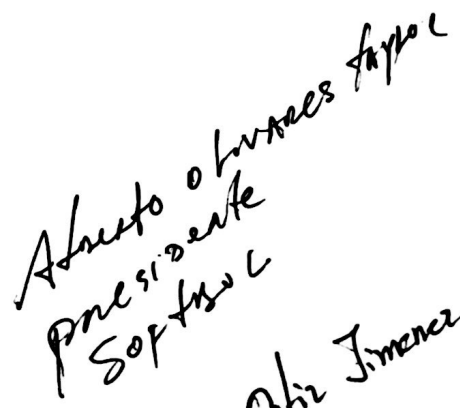 Alberto Olivares
presidente
Softbol
Ortiz Jimenez